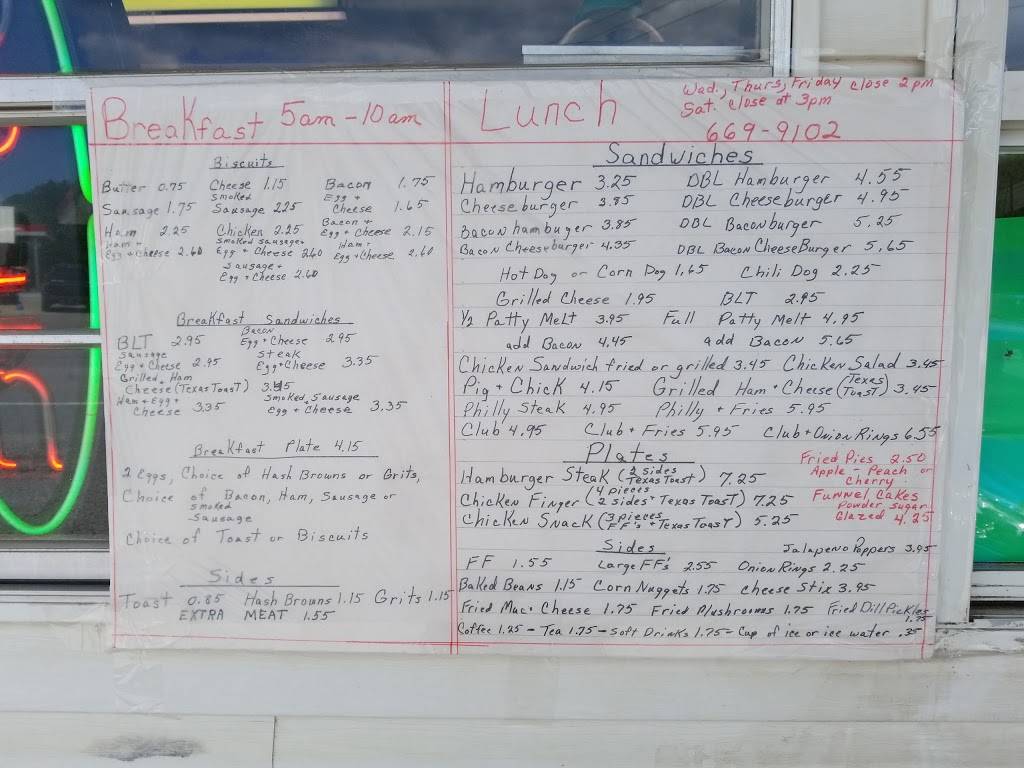 Breakfast 5am - 10am
Biscuits
Butter 0.75 Cheese 1.15 Bacon 1.75
Sausage 1.75 Smoked Sausage 2.25 Egg + Cheese 1.65
Ham 2.25 Chicken 2.25 Bacon + Egg + Cheese 2.15
Ham + Egg + Cheese 2.60 Smoked Sausage + Egg + Cheese 2.60 Ham + Egg + Cheese 2.60
Sausage + Egg + Cheese 2.60
Breakfast Sandwiches
BLT 2.95 Bacon Egg + Cheese 2.95
Sausage Egg + Cheese 2.95 Steak Egg + Cheese 3.35
Grilled Ham Cheese (Texas Toast) 3.45
Ham + Egg + Cheese 3.35 Smoked Sausage egg + Cheese 3.35
Breakfast Plate 4.15
2 Eggs, Choice of Hash Browns or Grits,
Choice of Bacon, Ham, Sausage or
Smoked
Sausage
Choice of Toast or Biscuits
Sides
Toast 0.85 Hash Browns 1.15 Grits 1.15
EXTRA MEAT 1.55
Lunch
Wed., Thurs, Friday close 2pm
Sat. close at 3pm
669-9102
Sandwiches
Hamburger 3.25 DBL Hamburger 4.55
Cheeseburger 3.85 DBL Cheeseburger 4.95
Bacon hambuger 3.85 DBL Baconburger 5.25
Bacon Cheeseburger 4.35 DBL Bacon CheeseBurger 5.65
Hot Dog or Corn Dog 1.65 Chili Dog 2.25
Grilled Cheese 1.95 BLT 2.95
1/2 Patty Melt 3.95 Full Patty Melt 4.95
add Bacon 4.45 add Bacon 5.65
Chicken Sandwich fried or grilled 3.45 Chicken Salad 3.45
Pig + Chick 4.15 Grilled Ham + Cheese (Texas Toast) 3.45
Philly Steak 4.95 Philly + Fries 5.95
Club 4.95 Club + Fries 5.95 Club + Onion Rings 6.55
Plates
Hamburger Steak (2 sides Texas Toast) 7.25
Chicken Finger (4 pieces 2 sides + Texas Toast) 7.25
Chicken Snack (3 pieces FF's + Texas Toast) 5.25
Fried Pies 2.50
Apple - Peach or
Cherry
Funnel Cakes
Powder Sugar
Glazed 4.25
Sides
Jalapeno Poppers 3.95
FF 1.55 Large FF's 2.55 Onion Rings 2.25
Baked Beans 1.15 Corn Nuggets 1.75 Cheese Stix 3.95
Fried Mac + Cheese 1.75 Fried Mushrooms 1.75 Fried Dill Pickles 1.75
Coffee 1.25 - Tea 1.75 - Soft Drinks 1.75 - Cup of ice or ice water .35